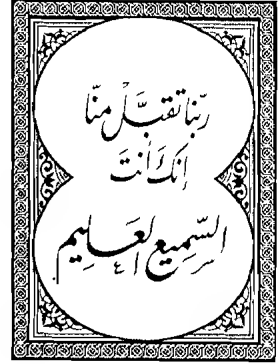 ربّنا تقبَّلْ منّا
إنّكَ أنتَ
السّميع العَلِيم